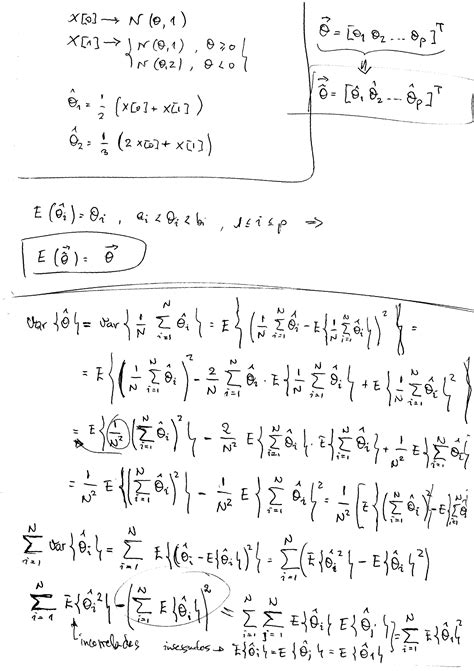 x[0] → N(θ, 1)
x[1] → { N(θ, 1), θ ≥ 0
N(θ, 2), θ < 0 }
θ̂₁ = 1/2 (x[0] + x[1])
θ̂₂ = 1/3 (2x[0] + x[1])
θ⃗ = [θ₁ θ₂ ... θₚ]ᵀ
⇓
θ̂⃗ = [θ̂₁ θ̂₂ ... θ̂ₚ]ᵀ
E(θ̂ᵢ) = θᵢ, aᵢ < θᵢ < bᵢ, 1 ≤ i ≤ p ⇒
E(θ̂⃗) = θ⃗
Var{θ̂} = Var{1/N ∑ᵢ₌₁ᴺ θ̂ᵢ} = E{(1/N ∑ᵢ₌₁ᴺ θ̂ᵢ − E{1/N ∑ᵢ₌₁ᴺ θ̂ᵢ})²} =
= E{(1/N ∑ᵢ₌₁ᴺ θ̂ᵢ)² − 2/N ∑ᵢ₌₁ᴺ θ̂ᵢ · E{1/N ∑ᵢ₌₁ᴺ θ̂ᵢ} + E{1/N ∑ᵢ₌₁ᴺ θ̂ᵢ}²}
= E{1/N² (∑ᵢ₌₁ᴺ θ̂ᵢ)²} − 2/N² E{∑ᵢ₌₁ᴺ θ̂ᵢ} · E{∑ᵢ₌₁ᴺ θ̂ᵢ} + 1/N² E{∑ᵢ₌₁ᴺ θ̂ᵢ}
= 1/N² E{(∑ᵢ₌₁ᴺ θ̂ᵢ)²} − 1/N² E{∑ᵢ₌₁ᴺ θ̂ᵢ}² = 1/N² [E{(∑ᵢ₌₁ᴺ θ̂ᵢ)²} − E{∑ᵢ₌₁ᴺ θ̂ᵢ
∑ᵢ₌₁ᴺ Var{θ̂ᵢ} = ∑ᵢ₌₁ᴺ E{(θ̂ᵢ − E{θ̂ᵢ})²} = ∑ᵢ₌₁ᴺ (E{θ̂ᵢ²} − E{θ̂ᵢ}²)
∑ᵢ₌₁ᴺ E{θ̂ᵢ²} − (∑ᵢ₌₁ᴺ E{θ̂ᵢ})² = ∑ᵢ₌₁ᴺ ∑ⱼ₌₁ᴺ E{θ̂ᵢ} E{θ̂ⱼ} = ∑ᵢ₌₁ᴺ E{θ̂ᵢ}²
incorrelados
insesgados → E{θ̂ᵢ} = E{θ̂ⱼ} = E{θ̂₁}